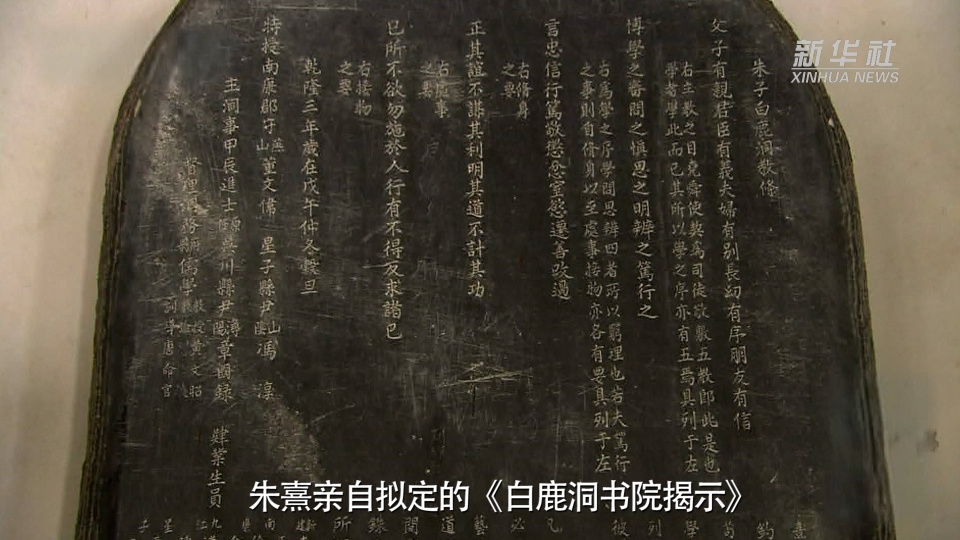 新华社
XINHUA NEWS
朱子白鹿洞教條
父子有親君臣有義夫婦有別長幼有序朋友有信
右五教之目堯舜使契為司徒敬敷五教即此是也
學者學此而已其所以學之序亦有五焉具列于左
博學之審問之慎思之明辨之篤行之
右為學之序學問思辨四者所以窮理也若夫篤行
之事則自脩身以至處事接物亦各有要具列于左
言忠信行篤敬懲忿窒慾遷善改過
右脩身
之要
正其誼不謀其利明其道不計其功
右處事
之要
已所不欲勿施於人行有不得反求諸已
右接物
之要
乾隆三年歲在戊午仲冬穀旦
特授南康郡守 山 董文偉 星子縣尹 山 馮 淳
主洞事甲辰進士 川縣尹 章國錄
儒學 教授黃文昭
訓導唐
肄業生員
朱熹亲自拟定的《白鹿洞书院揭示》